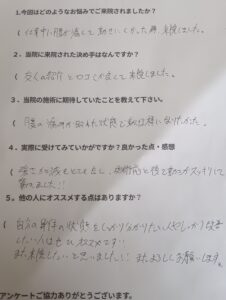 1.今回はどのようなお悩みでご来院されましたか？
( 仕事中に腰が痛くて動きにくかった為 来院しました。
2．当院に来院された決め手はなんですか？
( 友人の紹介と口コミがよくて来院しました。
3．当院の施術に期待していたことを教えて下さい。
( 腰の痛みが取れた状態で動ける様になりたかった。
4．実際に受けてみていかがですか？良かった点・感想
( 痛さが減るとともに、施術前と後で動きがスッキリして
驚きました!!
5．他の人にオススメする点はありますか？
( 自分の身体の状態をしっかり分かりたい人やしっかり改善
したい人はぜひオススメです!
また来院したいと思いました!! またよろしくお願いします。
アンケートご協力ありがとうございます。